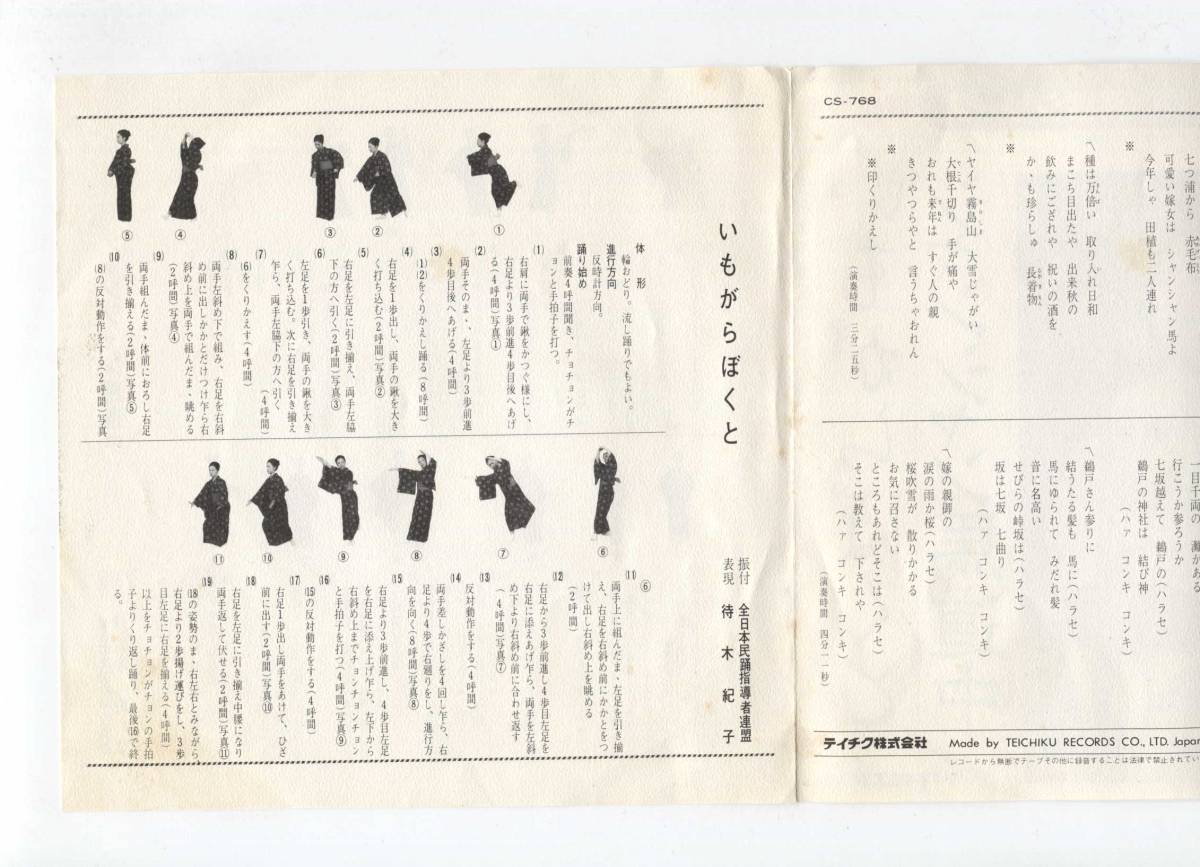 CS-768
七つ浦から 赤毛布
可愛い嫁女は シャンシャン馬よ
今年しゃ 田植も二人連れ
※
〽種は万倍い 取り入れ日和
まこち目出たや 出来秋の
飲みにござれや 祝いの酒を
か、も珍らしゅ 長着物
※
〽ヤイヤ霧島山 大雪じゃがい
大根千切り 手が痛や
おれも来年は すぐ人の親
きつやつらやと 言うちゃおれん
※
※印くりかえし
(演奏時間 三分二五秒)
一目千両の 灘がある
行こうか参ろうか
七坂越えて 鵜戸の(ハラセ)
鵜戸の神社は 結び神
(ハァ コンキ コンキ)
〽鵜戸さん参りに
結うたる髪も 馬に(ハラセ)
馬にゆられて みだれ髪
音に名高い
せびらの峠坂は(ハラセ)
坂は七坂 七曲り
(ハァ コンキ コンキ)
〽嫁の親御の
涙の雨か桜(ハラセ)
桜吹雪が 散りかかる
お気に召さない
ところもあれどそこは(ハラセ)
そこは教えて 下されや
(ハァ コンキ コンキ)
(演奏時間 四分一一秒)
テイチク株式会社 Made by TEICHIKU RECORDS CO., LTD. Japan
レコードから無断でテープその他に録音することは法律で禁止されてい
いもがらぼくと
振付 全日本民踊指導者連盟
表現 待木紀子
①
②
③
④
⑤
体形
輪おどり。流し踊りでもよい。
進行方向
反時計方向。
踊り始め
前奏4呼間聞き、チョチョンがチョンと手拍子を打つ。
(1)
右肩に両手で鍬をかつぐ様にし、
右足より3歩前進4歩目後へあげ
る(4呼間)写真①
(2)
両手そのま、、左足より3歩前進
4歩目後へあげる(4呼間)
(3)
(1)(2)をくりかえし踊る(8呼間)
(4)
右足を1歩出し、両手の鍬を大き
く打ち込む(2呼間)写真②
(5)
右足を左足に引き揃え、両手左脇
下の方へ引く(2呼間)写真③
(6)
左足を1歩引き、両手の鍬を大き
く打ち込む。次に右足を引き揃え
乍ら、両手左脇下の方へ引く
(4呼間)
(7)
(6)をくりかえす(4呼間)
(8)
両手左斜め下で組み、右足を右斜
め前に出しかかとだけつけ乍ら右
斜め上を両手で組んだま、眺める
(2呼間)写真④
(9)
両手組んだま、体前におろし右足
を引き揃える(2呼間)写真⑤
(10)
(8)の反対動作をする(2呼間)写真
⑥
⑥
⑦
⑧
⑨
⑩
⑪
(11)
両手上に組んだま、左足を引き揃
え、右足を右斜め前にかかとをつ
けて出し右斜め上を眺める
(2呼間)
(12)
右足から3歩前進し4歩目左足を
右足に添えあげ乍ら、両手を左斜
め下より右斜め前に合わせ返す
(4呼間)写真⑦
(13)
反対動作をする(4呼間)
(14)
両手差しかざしを4回し乍ら、右
足より4歩で右廻りをし、進行方
向を向く(8呼間)写真⑧
(15)
右足より3歩前進し、4歩目左足
を右足に添え上げ乍ら、左下から
右斜め上までチョンチョンチョン
と手拍子を打つ(4呼間)写真⑨
(16)
(15)の反対動作をする(4呼間)
(17)
右足1歩出し両手をあけて、ひざ
前に出す(2呼間)写真⑩
(18)
右足を左足に引き揃え中腰になり
両手返して伏せる(2呼間)写真⑪
(19)
(18)の姿勢のま、右左右とみながら、
右足より2歩揚げ運びをし、3歩
目左足に右足を揃える(4呼間)
以上をチョチョンがチョンの手拍
子よりくり返し踊り、最後(16)で終
る。